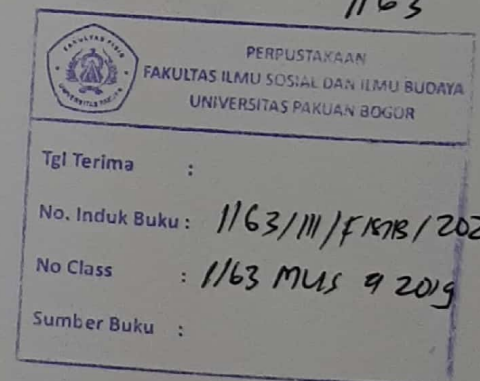 1163
PERPUSTAKAAN
FAKULTAS ILMU SOSIAL DAN ILMU BUDAYA
UNIVERSITAS PAKUAN BOGOR
Tgl Terima :
No. Induk Buku : 1163/III/FISIB/202
No Class : 1163 MUS 9 2019
Sumber Buku :